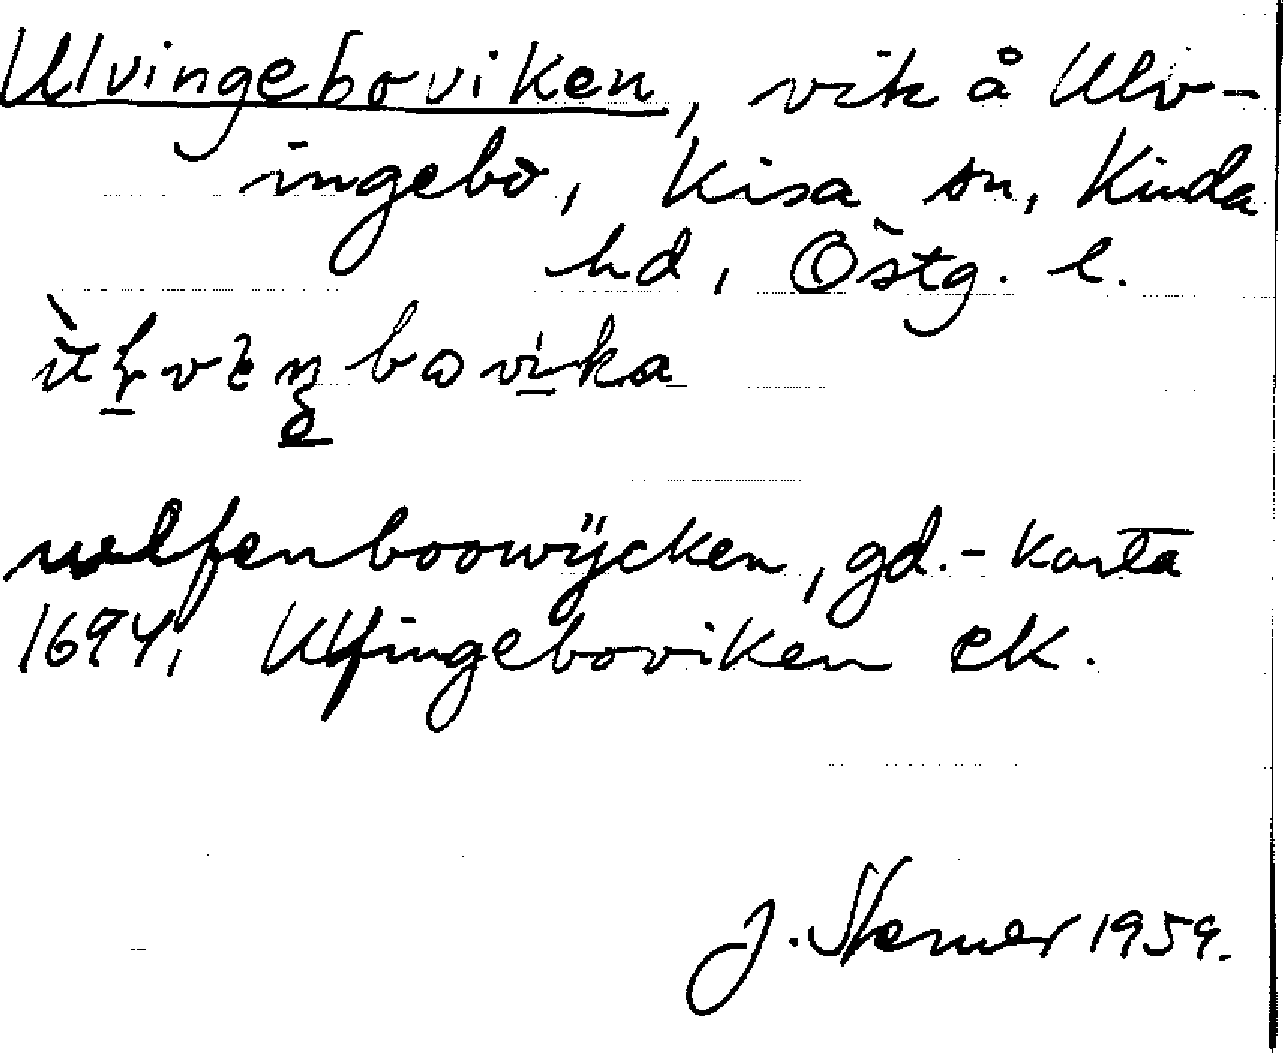 Ulvingeboviken, vik å Ulv-
ingebo, Kisa sn, Kinda
hd, Östg. l.
ulfenboowÿcken, gd.-karta
1694, Ulfingeboviken ek.
J. Sterner 1959.